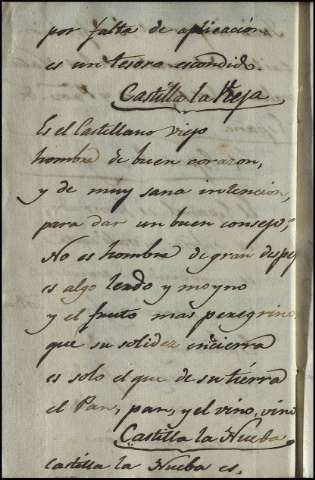 por falta de aplicación
es un tesoro escondido.
Castilla la Vieja
Es el Castellano viejo
hombre de buen corazon,
y de muy sana intencion,
para dar un buen consejo;
No es hombre de gran despej
es algo lerdo y moyno
y el fruto mas peregrino
que su solidez encierra
es solo el que de su tierra
el Pan, pan, y el vino, vino
Castilla la Nueba
Castilla la Nueba es,